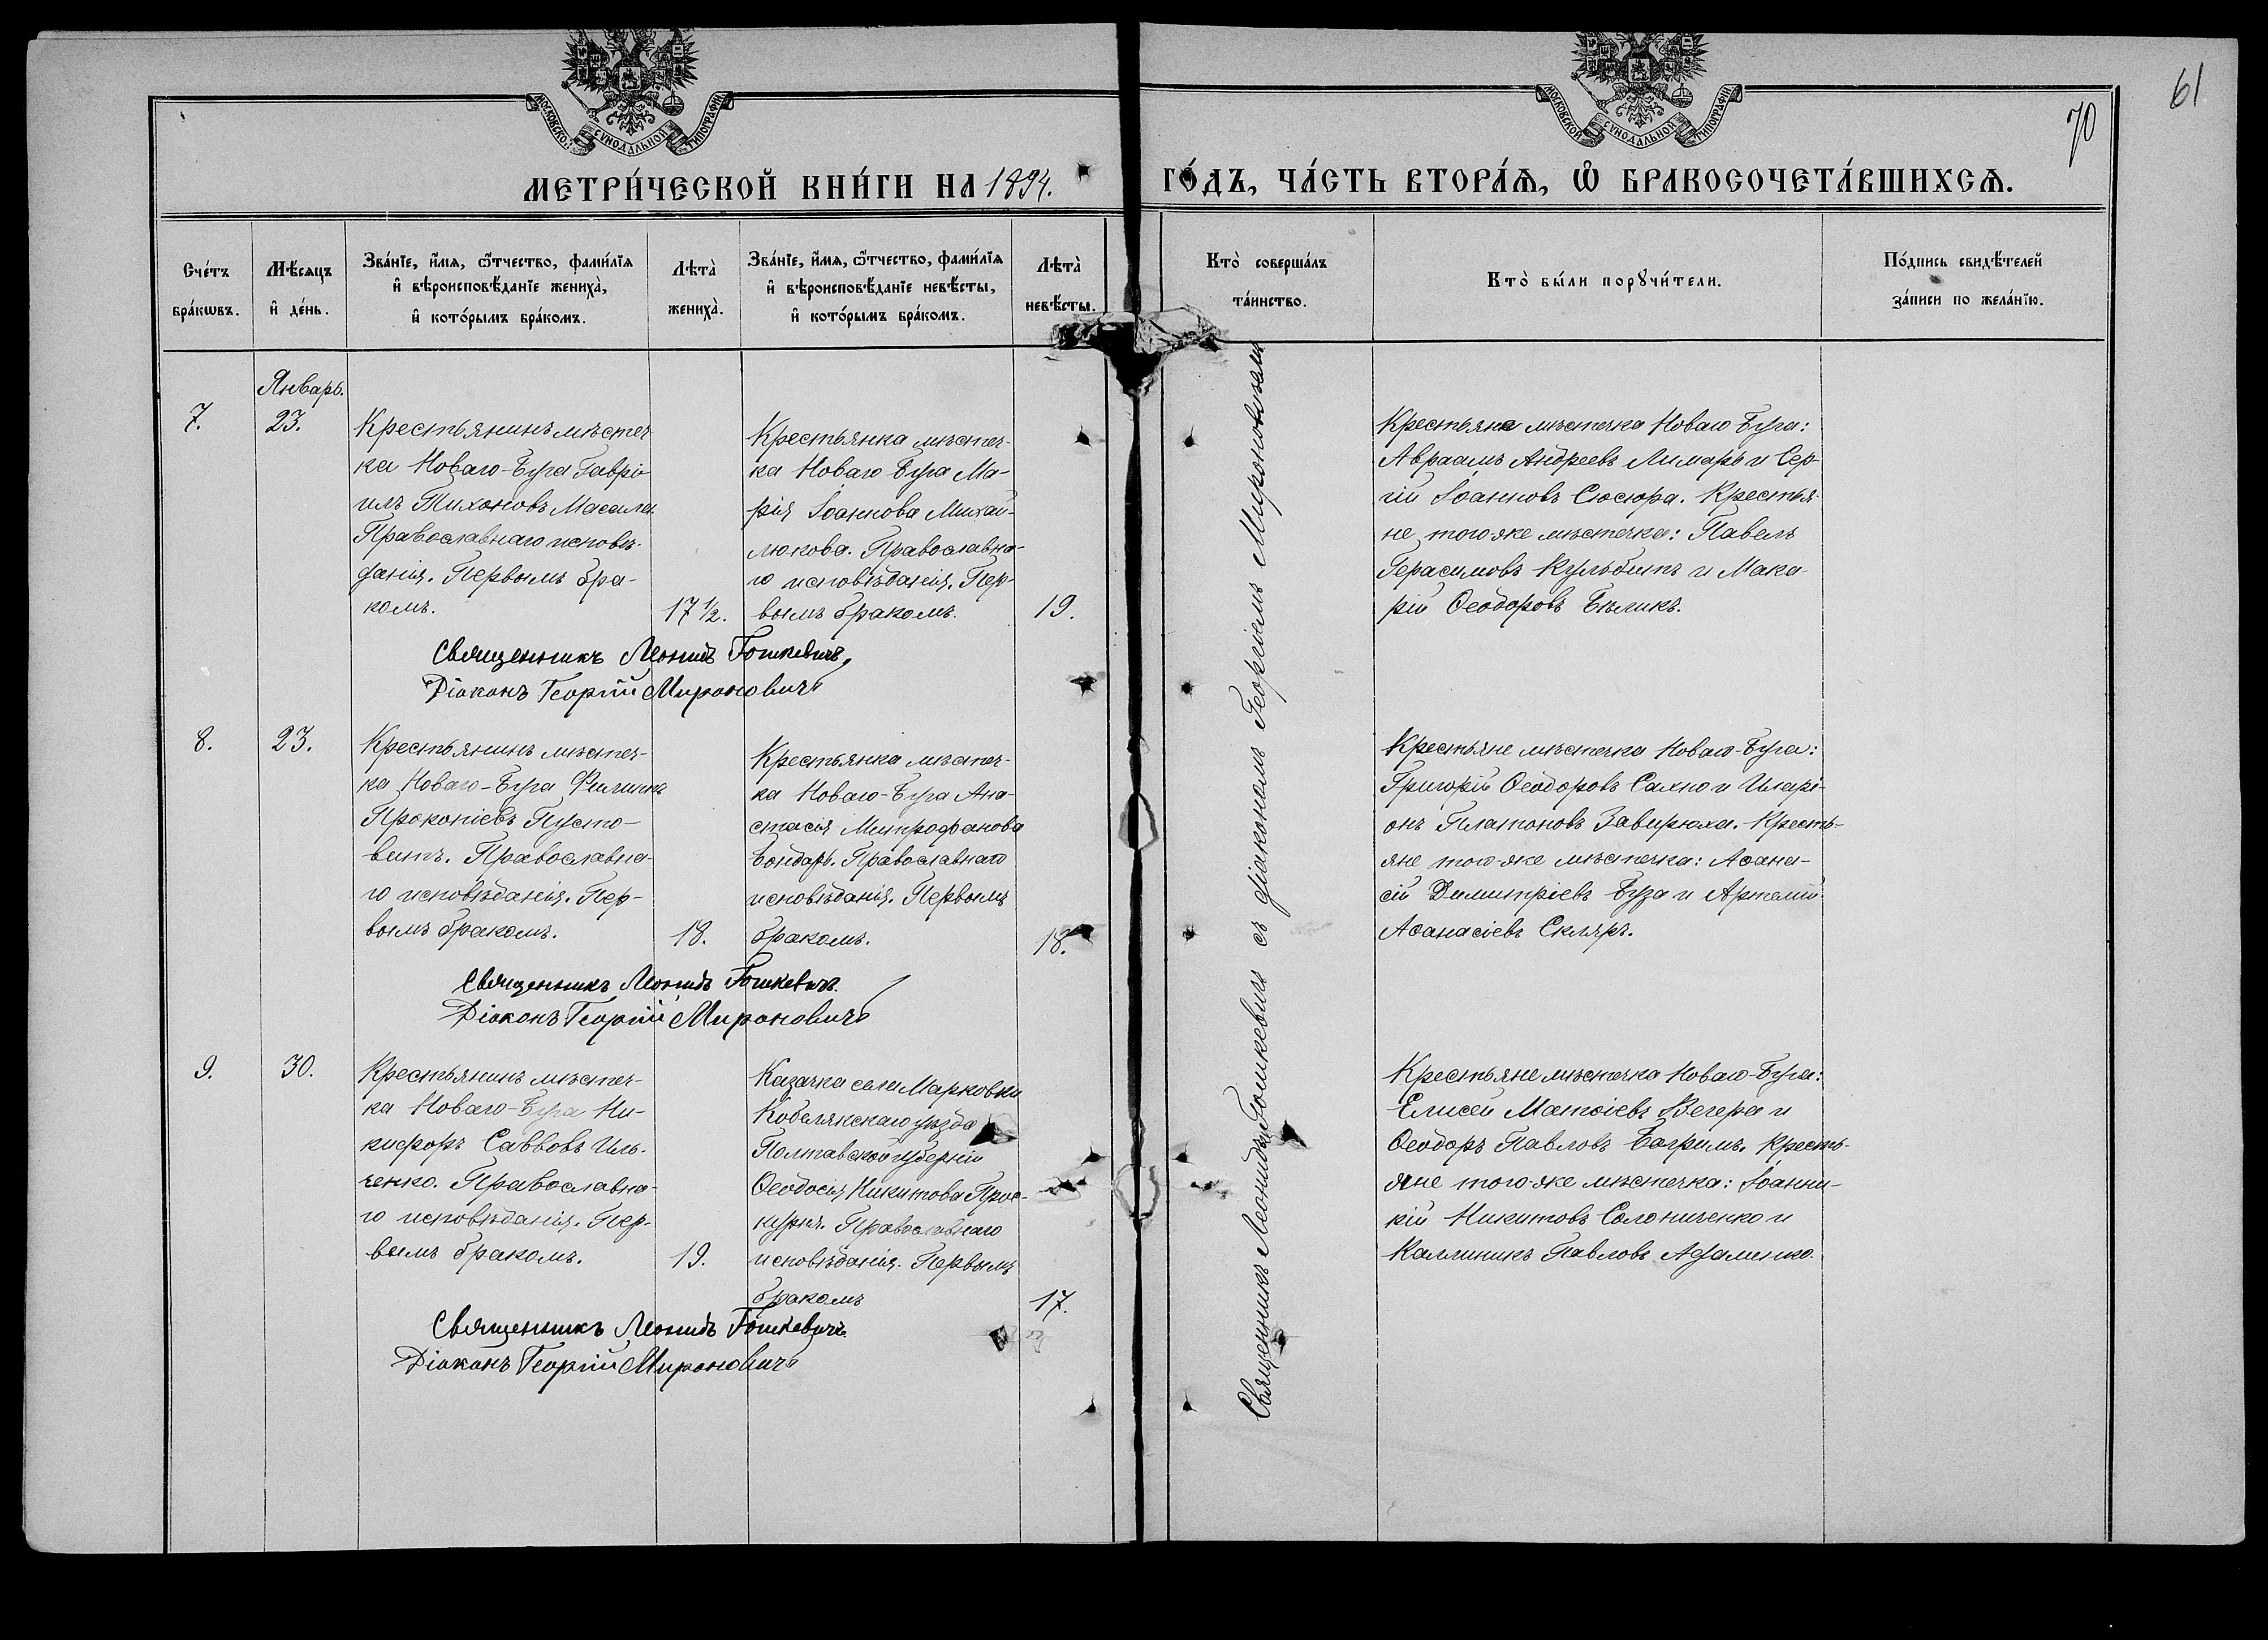 МОСКОВСКОЙ СУНОДАЛЬНОЙ ТИПОГРАФІИ
МОСКОВСКОЙ СУНОДАЛЬНОЙ ТИПОГРАФІИ
61
70
МЕТРИ́ЧЕСКОЙ КНИ́ГИ НА 1894. ГО́ДЪ, ЧА́СТЬ ВТОРА́Ѧ, Ѡ҆ БРАКОСОЧЕТА́ВШИХСѦ.
Счéтъ
бра́кѡвъ.
Мѣ́сяцъ
и҆ де́нь.
Зва́нїе, и҆́мѧ, ѻ҆́тчество, фами́лїѧ
и҆ вѣроисповѣ́данїе жениха̀,
и҆ кото́рымъ бра́комъ.
Лѣта̀
жениха̀.
Зва́нїе, и҆́мѧ, ѻ҆́тчество, фами́лїѧ
и҆ вѣроисповѣ́данїе невѣ́сты,
и҆ кото́рымъ бра́комъ.
Лѣта̀
невѣ́сты.
Кто̀ соверша́лъ
та́инство.
Кто̀ бы́ли порꙋчи́тели.
По́дпись свидѣ́телей
за́писи по жела́нїю.
Январь.
7.
23.
Крестьянинъ мѣстеч
ка Новаго-Буга Гаврі-
илъ Тихоновъ Масали
Православнаго исповѣ-
данія. Первымъ бра-
комъ.
17 ½.
Крестьянка мѣстеч-
ка Новаго Буга Ма-
рія Іоаннова Михай-
люкова. Православна-
го исповѣданія. Пер-
вымъ бракомъ.
19.
Крестьяне мѣстечка Новаго Буга:
Авраамъ Андреевъ Лимарь и Сер-
гій Іоанновъ Сюсюра. Крестья-
не того-же мѣстечка: Павелъ
Герасимовъ Кульбитъ и Мака-
рій Ѳеодоровъ Бѣликъ.
Священникъ Леонидъ Гошкевичъ.
Діаконъ Георгій Мироновичъ
8.
23.
Крестьянинъ мѣстеч-
ка Новаго-Буга Филиппъ
Прокопіевъ Пусто-
витъ. Православна-
го исповѣданія. Пер-
вымъ бракомъ.
18.
Крестьянка мѣстеч-
ка Новаго-Буга Ана-
стасія Митрофанова
Бондарь. Православнаго
исповѣданія. Первымъ
бракомъ.
18.
Крестьяне мѣстечка Новаго-Буга:
Григорій Ѳеодоровъ Сахно и Иларі-
онъ Платоновъ Завирюха. Кресть-
яне того-же мѣстечка: Аѳана-
сій Димитріевъ Буза и Артемій
Аѳанасіевъ Скляръ.
Священникъ Леонидъ Гошкевичъ.
Діаконъ Георгій Мироновичъ
9.
30.
Крестьянинъ мѣстеч-
ка Новаго-Буга Ни-
кифоръ Саввовъ Иль-
ченко. Православна-
го исповѣданія. Пер-
вымъ бракомъ.
19.
Казачка села Марковки
Кобелякскаго уѣзда
Полтавской губерніи
Ѳеодосія Никитова Прос-
курня. Православнаго
исповѣданія. Первымъ
бракомъ
17.
Крестьяне мѣстечка Новаго-Буга:
Елисей Матѳіевъ Вегера и
Ѳеодоръ Павловъ Багримъ. Кресть-
яне того-же мѣстечка: Іоанни-
кій Никитовъ Солониченко и
Каллиникъ Павловъ Адаменко.
Священникъ Леонидъ Гошкевичъ.
Діаконъ Георгій Мироновичъ
Священникъ Леонидъ Гошкевичъ съ діакономъ Георгіемъ Мироновичемъ